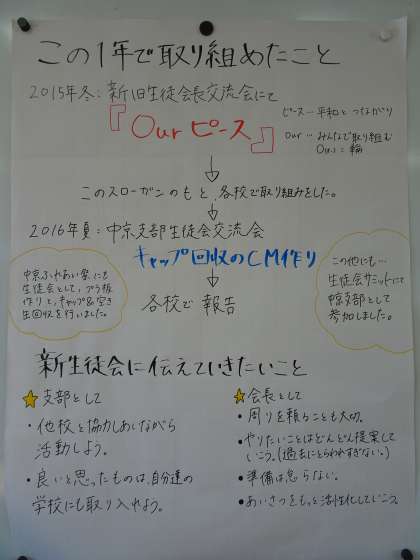 この1年で取り組めたこと
2015年冬:新旧生徒会長交流会にて
『Our ピース』
ピース…平和とつながり
Our…みんなで取り組む
Our=輪
↓
このスローガンのもと、各校で取り組みをした。
↓
2016年夏:中京支部生徒会交流会
キャップ回収のCM作り
↓
各校で報告
中京ふれあい祭にも
生徒会として、プラ板
作りと、キャップ&空き
缶回収を行いました。
この他にも…
生徒会サミットにて
中京支部として
参加しました。
新生徒会に伝えていきたいこと
☆支部として
・他校と協力しあいながら
活動しよう。
・良いと思ったものは、自分達の
学校にも取り入れよう。
☆会長として
・周りを頼ることも大切。
・やりたいことはどんどん提案して
いこう。(過去にとらわれすぎない。)
・準備は怠らない。
・あいさつをもっと活性化していこう。